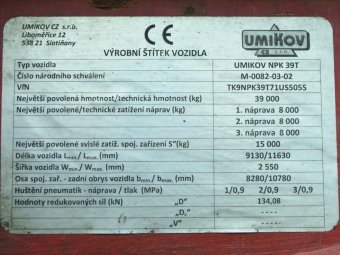 UMIKOV CZ s.r.o.
Libomeřice 12
538 21 Slatiňany
CE
UMIKOV
CZ s.r.o.
VÝROBNÍ ŠTÍTEK VOZIDLA
Typ vozidla UMIKOV NPK 39T
Číslo národního schválení M-0082-03-02
VIN TK9NPK39T71US5055
Největší povolená hmotnost/technická hmotnost (kg) 39 000
Největší povolené/technické zatížení náprav (kg) 1. náprava 8 000
2. náprava 8 000
3. náprava 8 000
Největší povolené svislé zatíž. spoj. zařízení S"(kg) 15 000
Délka vozidla Lmin./ Lmax. (mm) 9130/11630
Šířka vozidla Wmin./ Wmax. (mm) 2 550
Osa spoj. zař. - zadní obrys vozidla bmin./ bmax. (mm) 8280/10780
Huštění pneumatik - náprava / tlak (MPA) 1/0,9 2/0,9 3/0,9
Hodnoty redukovaných sil (kN) „D" 134,08
„Dc" ----
„V" ----